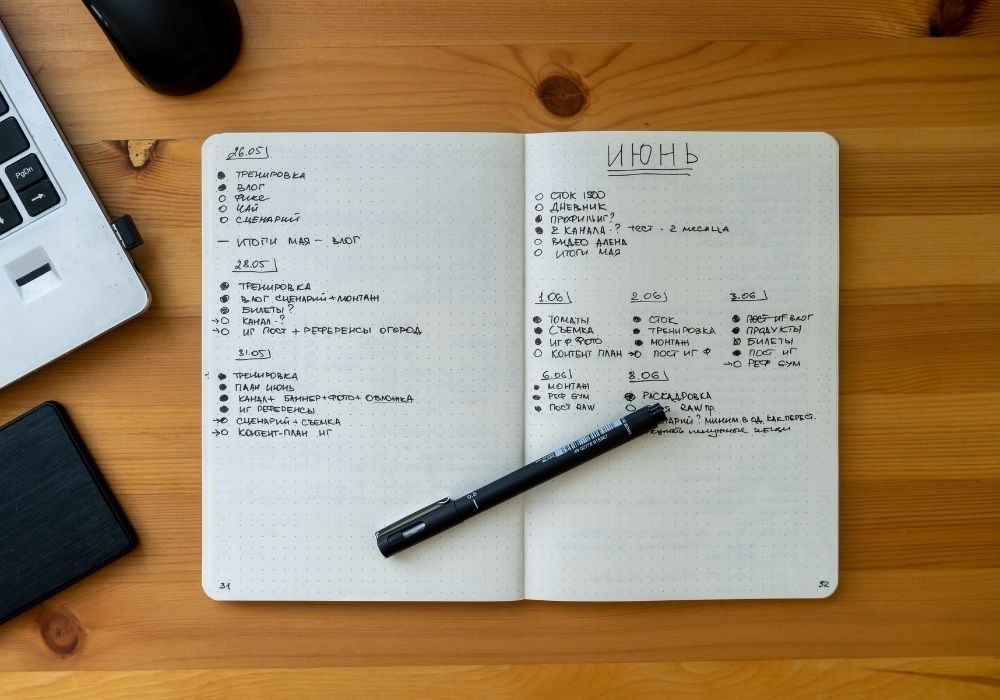 PgDn
26.05
ТРЕНИРОВКА
ВЛОГ
ФИКС
ЧАЙ
СЦЕНАРИЙ
— ИТОГИ МАЯ — ВЛОГ
28.05
ТРЕНИРОВКА
ВЛОГ СЦЕНАРИЙ + МОНТАЖ
БИЛЕТЫ?
КАНАЛ - ?
ИГ ПОСТ + РЕФЕРЕНСЫ ОГОРОД
31.05
ТРЕНИРОВКА
ПЛАН ИЮНЬ
КАНАЛ + БАННЕР + ФОТО + ОБЛОЖКА
ИГ РЕФЕРЕНСЫ
СЦЕНАРИЙ + СЪЕМКА
КОНТЕНТ-ПЛАН ИГ
31
ИЮНЬ
СТОК 1500
ДНЕВНИК
ПРОФИЛЬ ИГ?
2 КАНАЛА - ? ТЕСТ - 2 МЕСЯЦА
ВИДЕО АЛЕНА
ИТОГИ МАЯ
1.06
ТОМАТЫ
СЪЕМКА
ИГ Ф. ФОТО
КОНТЕНТ ПЛАН
2.06
СТОК
ТРЕНИРОВКА
МОНТАЖ
ПОСТ ИГ Ф
3.06
ПОСТ ИГ ВЛОГ
ПРОДУКТЫ
БИЛЕТЫ
ПОСТ ИГ
РЕФ GYM
6.06
МОНТАЖ
РЕФ GYM
ПОСТ RAW
8.06
РАСКАДРОВКА
RAW ПР.
? МИНИМ. В ОД. КАК ПЕРЕСТ.
НЕНУЖНЫЕ ВЕЩИ
0.5
32